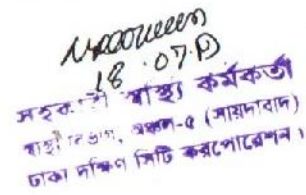 18.07.
সহকারী স্বাস্থ্য কর্মকর্তা
স্বাস্থ্য বিভাগ, অঞ্চল-৫ (সায়দাবাদ)
ঢাকা দক্ষিণ সিটি করপোরেশন।